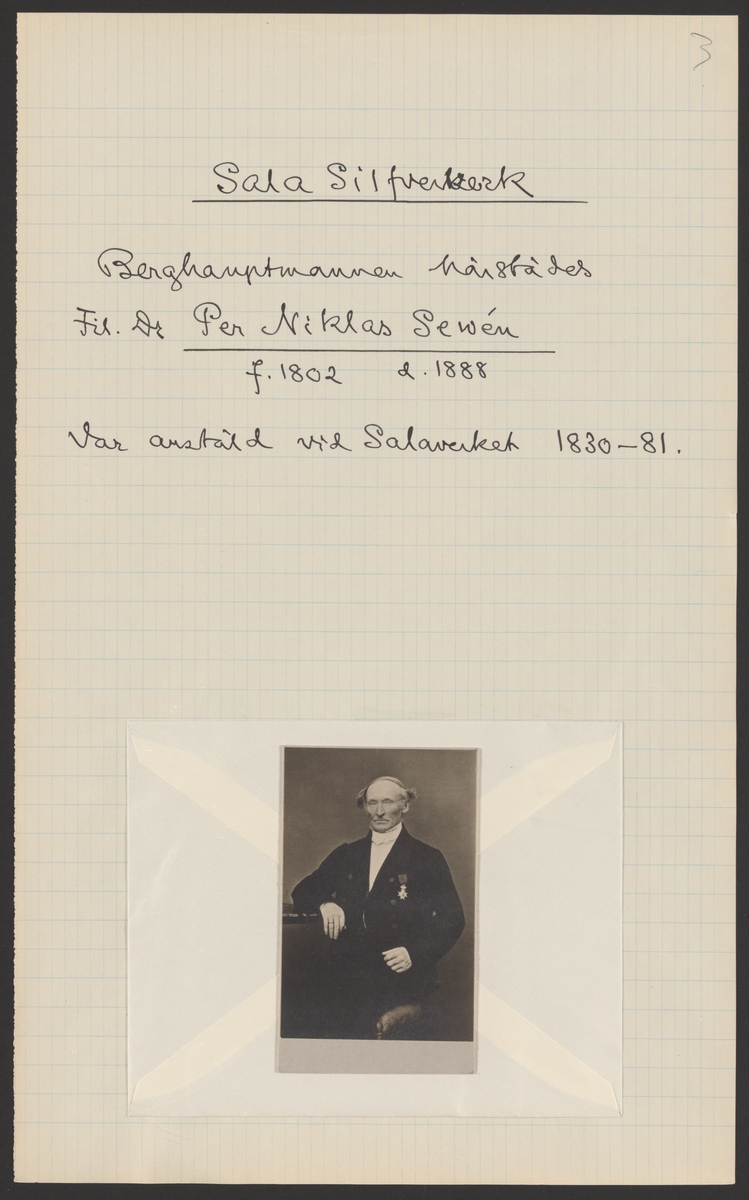 3
Sala Silfververk
Berghauptmannen härstädes
Fil. Dr Per Niklas Sewén
f. 1802 d. 1888
Var anstäld vid Salaverket 1830–81.